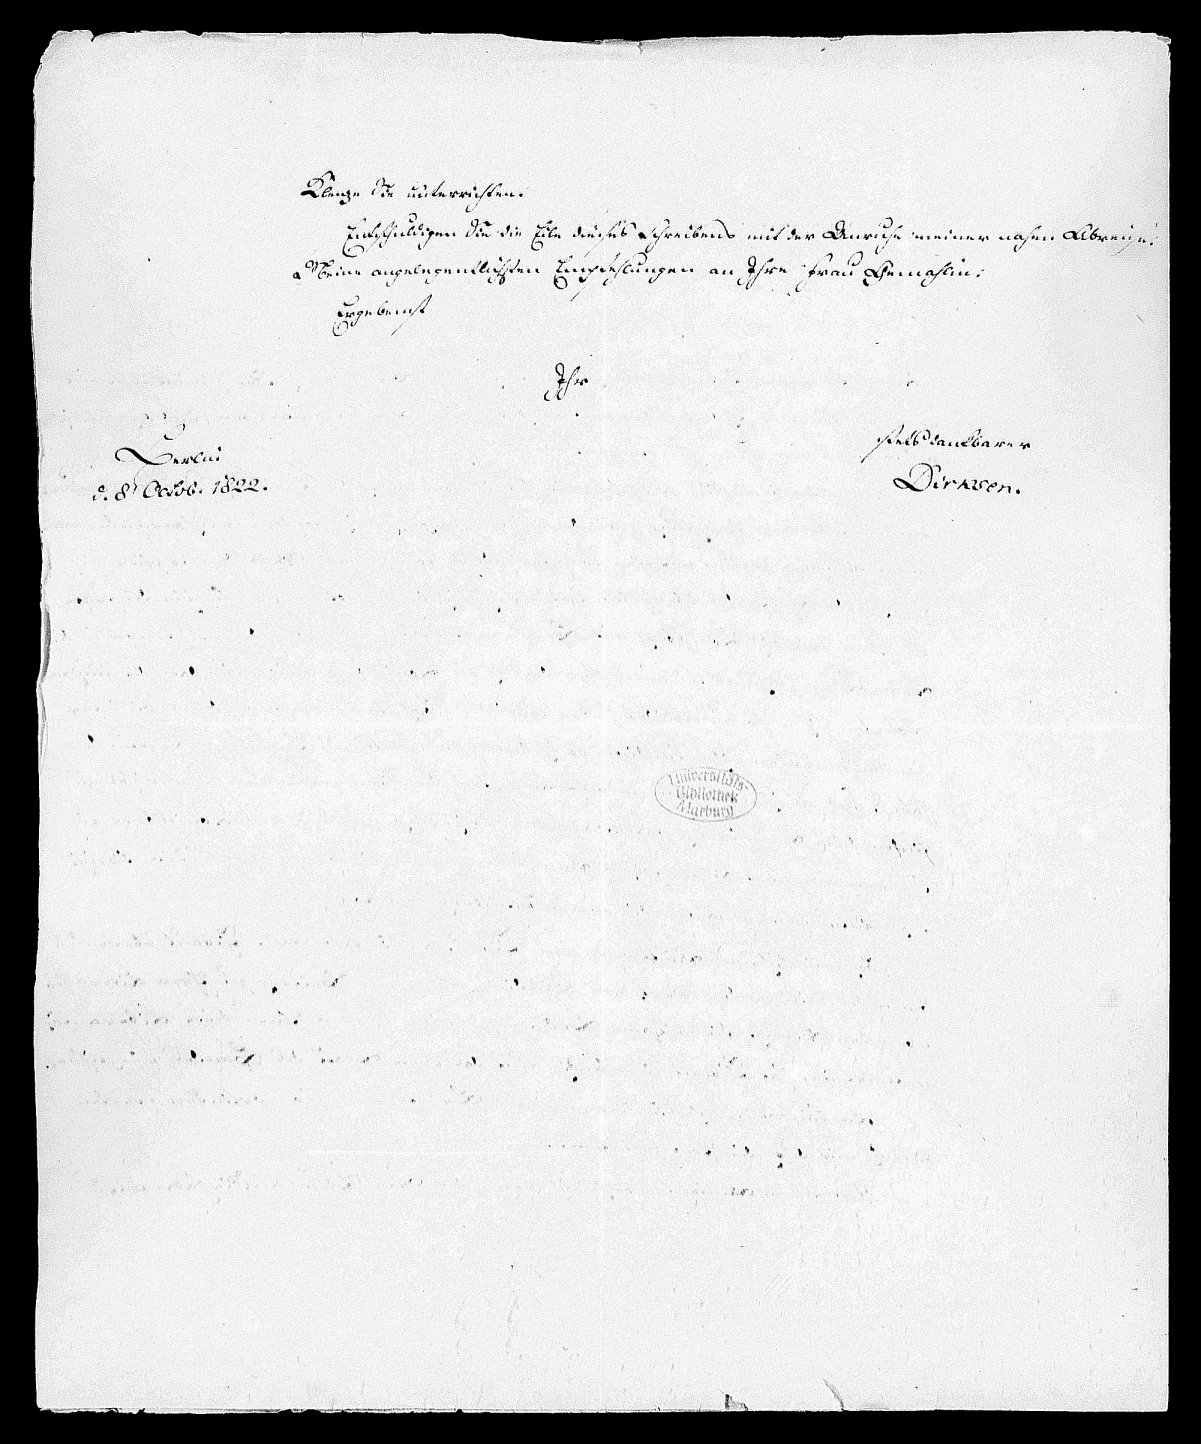 Klenze Sie unterrichten.
Entschuldigen Sie die Eile dieses Schreibens mit der Unruhe meiner nahen Abreise.
Meine angelegentlichsten Empfehlungen an Ihre Frau Gemahlin.
Ergebenst
Ihr
stets dankbarer
Dirksen.
Berlin
d. 8 Octob. 1822.
Universitäts-
Bibliothek
Marburg